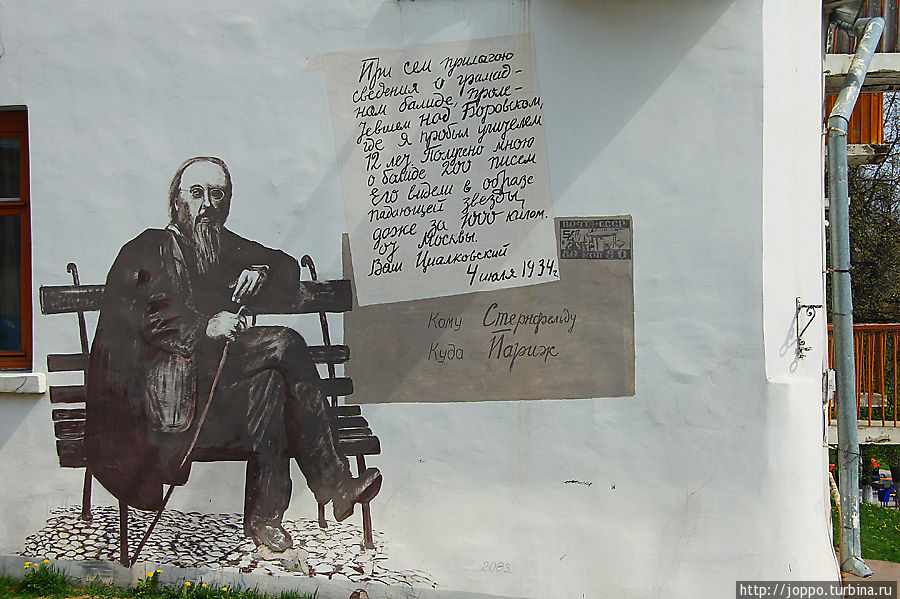 При сем прилагаю
сведения о грамад-
ном балиде, проле-
тевшем над Боровском,
где я пробыл учителем
12 лет. Получено мною
о балиде 200 писем
Его видели в образе
падающей звезды,
даже за 1000 килом.
от Москвы.
Ваш Циалковский
4 июля 1934 г.
ПОЧТА СССР
50 КОП 50
Кому Стернфельду
Куда Париж
2083
http://joppo.turbina.ru/